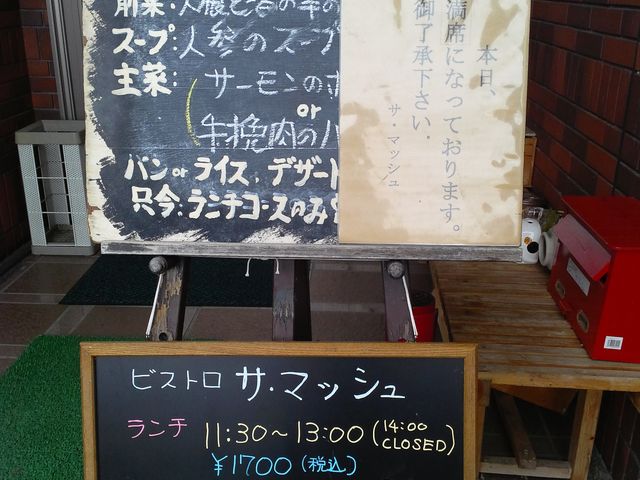 前菜:
スープ:人参のスープ
主菜: サーモンのポ
or
牛挽肉のハ
パンorライス、デザート
只今:ランチコースのみ
本日、
満席になっております。
御了承下さい.
サ.マッシュ
ビストロ サ・マッシュ
ランチ 11:30~13:00(14:00 CLOSED)
¥1700(税込)